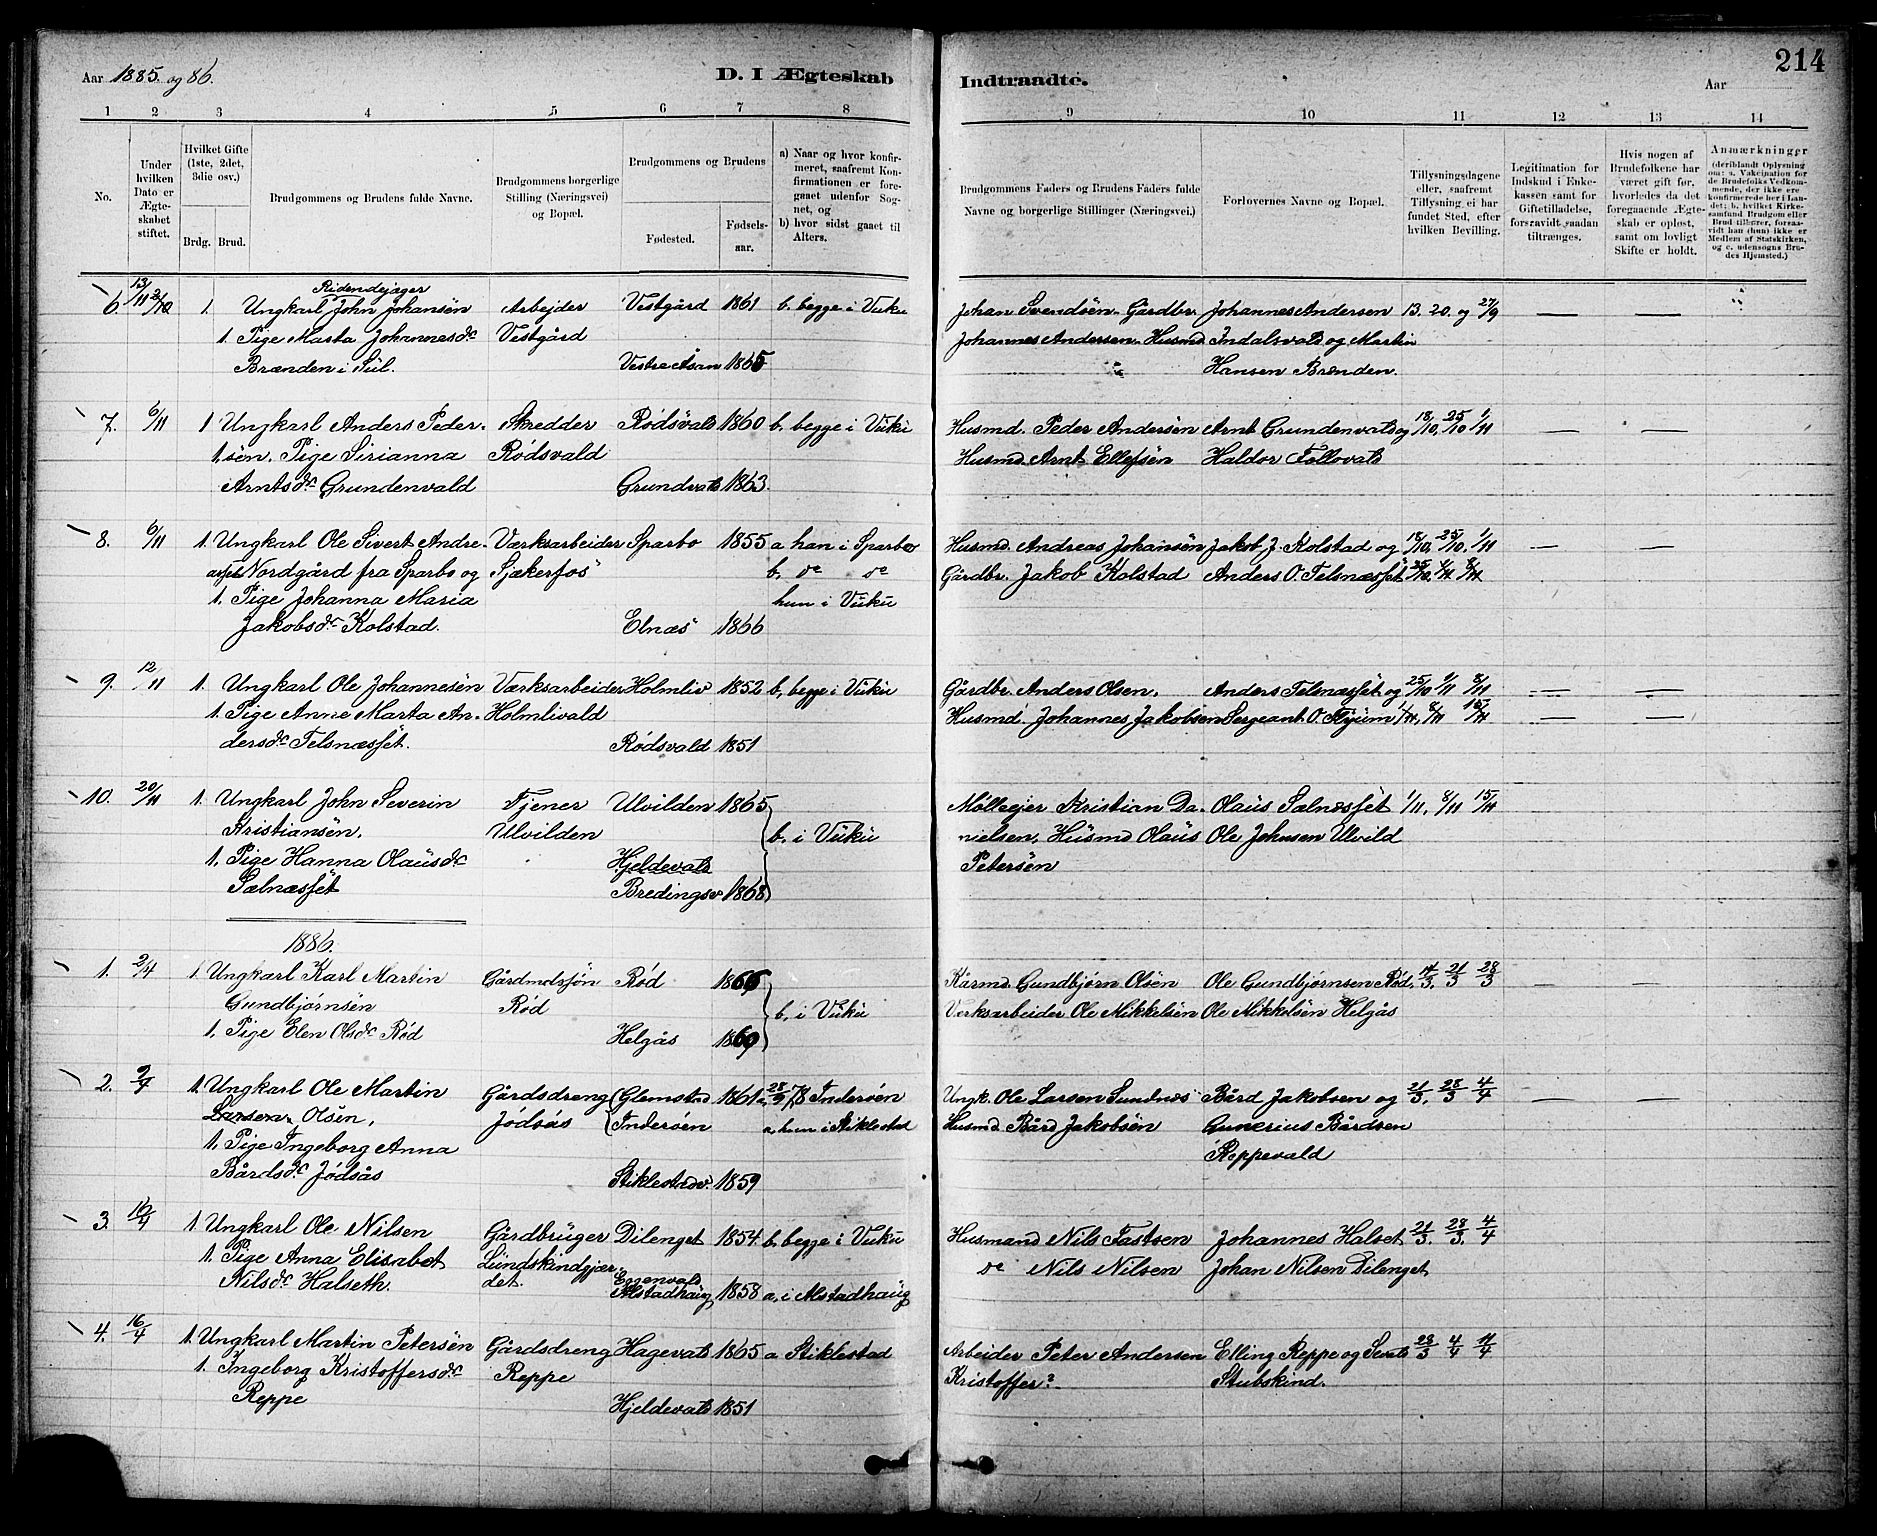 Aar 1885. og 86.
D. I Ægteskab Indtraadte.
Aar
214
1 2 3 4 5 6 7 8 9 10 11 12 13 14
No.
Under hvilken Dato er Ægteskabet stiftet.
Hvilket Gifte (1ste, 2det, 3die osv.)
Brdg. Brud.
Brudgommens og Brudens fulde Navne.
Brudgommens borgerlige Stilling (Næringsvei) og Bopæl.
Brudgommens og Brudens
Fødested.
Fødselsaar.
a) Naar og hvor konfirmeret, saafremt Konfirmationen er foregaaet udenfor Sognet, og
b) hvor sidst gaaet til Alters.
Brudgommens Faders og Brudens Faders fulde Navne og borgerlige Stillinger (Næringsvei.)
Forlovernes Navne og Bopæl.
Tillysningsdagene eller, saafremt Tillysning ei har fundet Sted, efter hvilken Bevilling.
Legitimation for Indskud i Enkekassen samt for Giftetilladelse, forsaavidt saadan tiltrænges.
Hvis nogen af Brudefolkene har været gift før, hvorledes da det foregaaende Ægteskab er opløst, samt om lovligt Skifte er holdt.
Anmærkninger (deriblandt Oplysning om: a. Vakcination for de Brudefolks Vedkommende, der ikke ere konfirmerede her i Landet; b. hvilket Kirkesamfund Brudgom eller Brud tilhører, forsaavidt han (hun) ikke er Medlem af Statskirken, og c. udensogns Brudes Hjemsted.)
Ridendejæger
6. 13/11 2/10 1. Ungkarl John Johansön Arbejder Vestgård 1861 b. begge i Vuku Johan Svendsön Gårdbr. Johannes Andersen 13. 20. og 27/9 — —
1. Pige Marta Johannesdr Vestgård Johannes Andersen Husmd Indalsvald og Martin
Brænden i Sul. Vestre Åsan 1865 Hansen Brenden.
7. 6/11 1 Ungkarl Anders Peder- Skredder Rödsvald 1860 b. begge i Vuku Husmd. Peder Andersön Arnt Grundenvald og 18/10, 25/10 1/11 — —
1. sön. Pige Sirianna Rödsvald Husmd. Arnt Ellefsön Haldor Follovald
Arntsdr Grundenvald Grundvald 1863.
8. 6/11 1. Ungkarl Ole Sivert Andre- Værksarbeider Sparbo 1855 a han i Sparbo Husmd. Andreas Johansön Jakob J. Kolstad og 18/10, 25/10, 1/11 — —
Nordgård fra Sparbo og Sjækerfos b. do do Gårdbr. Jakob Kolstad Anders O. Telsnæsset 25/10, 1/11 8/11
1. Pige Johanna Maria hun i Vuku
Jakobsdr Kolstad. Elnæs 1866
9. 12/11 1. Ungkarl Ole Johannesön Værksarbeider Holmliv 1852 b. begge i Vuku Gårdbr. Anders Olsen. Anders Telsnæsset og 25/10 1/11 8/11 — —
1. Pige Anne Marta An- Holmlivald Husmd. Johannes Jakobsen Sergeant O. Flyum 1/11, 8/11 15/11 — —
dersdr Telsnæsset. Rödsvald 1851
10. 20/11 1. Ungkarl John Severin Tjener Ulvilden 1865 Mölleejer Kristian Da- Olaus Salnæsset 1/11, 8/11 15/11
Kristiansön, Ulvilden b. i Vuku nielsen, Husmd Olaus Ole Johnsen Ulvild
1. Pige Hanna Olausdr Hjeldevald Petersön
Salnæsset Bredingsv. 1868
1886.
1. 2/4 1. Ungkarl Karl Martin Gårdmdssön Röd 1866 Kårmd Gundbjörn Olsön Ole Gundbjörnsen Röd, 14/3, 21/3 28/3 — —
Gundbjörnsön Röd b. i Vuku Verksarbeider Ole Mikkelsön Ole Mikkelsön Helgås
1. Pige Elen Olsdr Röd Helgås 1869
2. 9/4 1. Ungkarl Ole Martin Gårdsdreng Glemstad 1861 a. 28/9 78 Inderöen Ungk. Ole Larsen Sundnes Bård Jakobsen og 21/3, 28/3 4/4 — —
Larsen Olsön, Jödsås Inderöen a. hun i Stiklestad Husmd Bård Jakobsön Gunerius Bårdsen
1. Pige Ingeborg Anna Reppevald
Bårdsdr Jödsås Stiklestadv. 1859
3. 16/4 1. Ungkarl Ole Nilsen Gårdbruger Dilenget 1854. b. begge i Vuku Husmand Nils Tastsen Johannes Halset 21/3, 28/3, 4/4
1. Pige Anna Elisabet Lundskindgjær- do Nils Nilsen Johan Nilsen Dilenget
Nilsdr Halseth. det. Alstadhaug 1858 a. i Alstadhaug
4. 16/4 1. Ungkarl Martin Petersön Gårdsdreng Hagevald 1865 a Stiklestad Arbeider Peter Andersen Elling Reppe og 28/3 4/4 11/4
1. Ingeborg Kristoffersdr Reppe Kristoffer? Stubskind.
Reppe Hjeldevald 1851